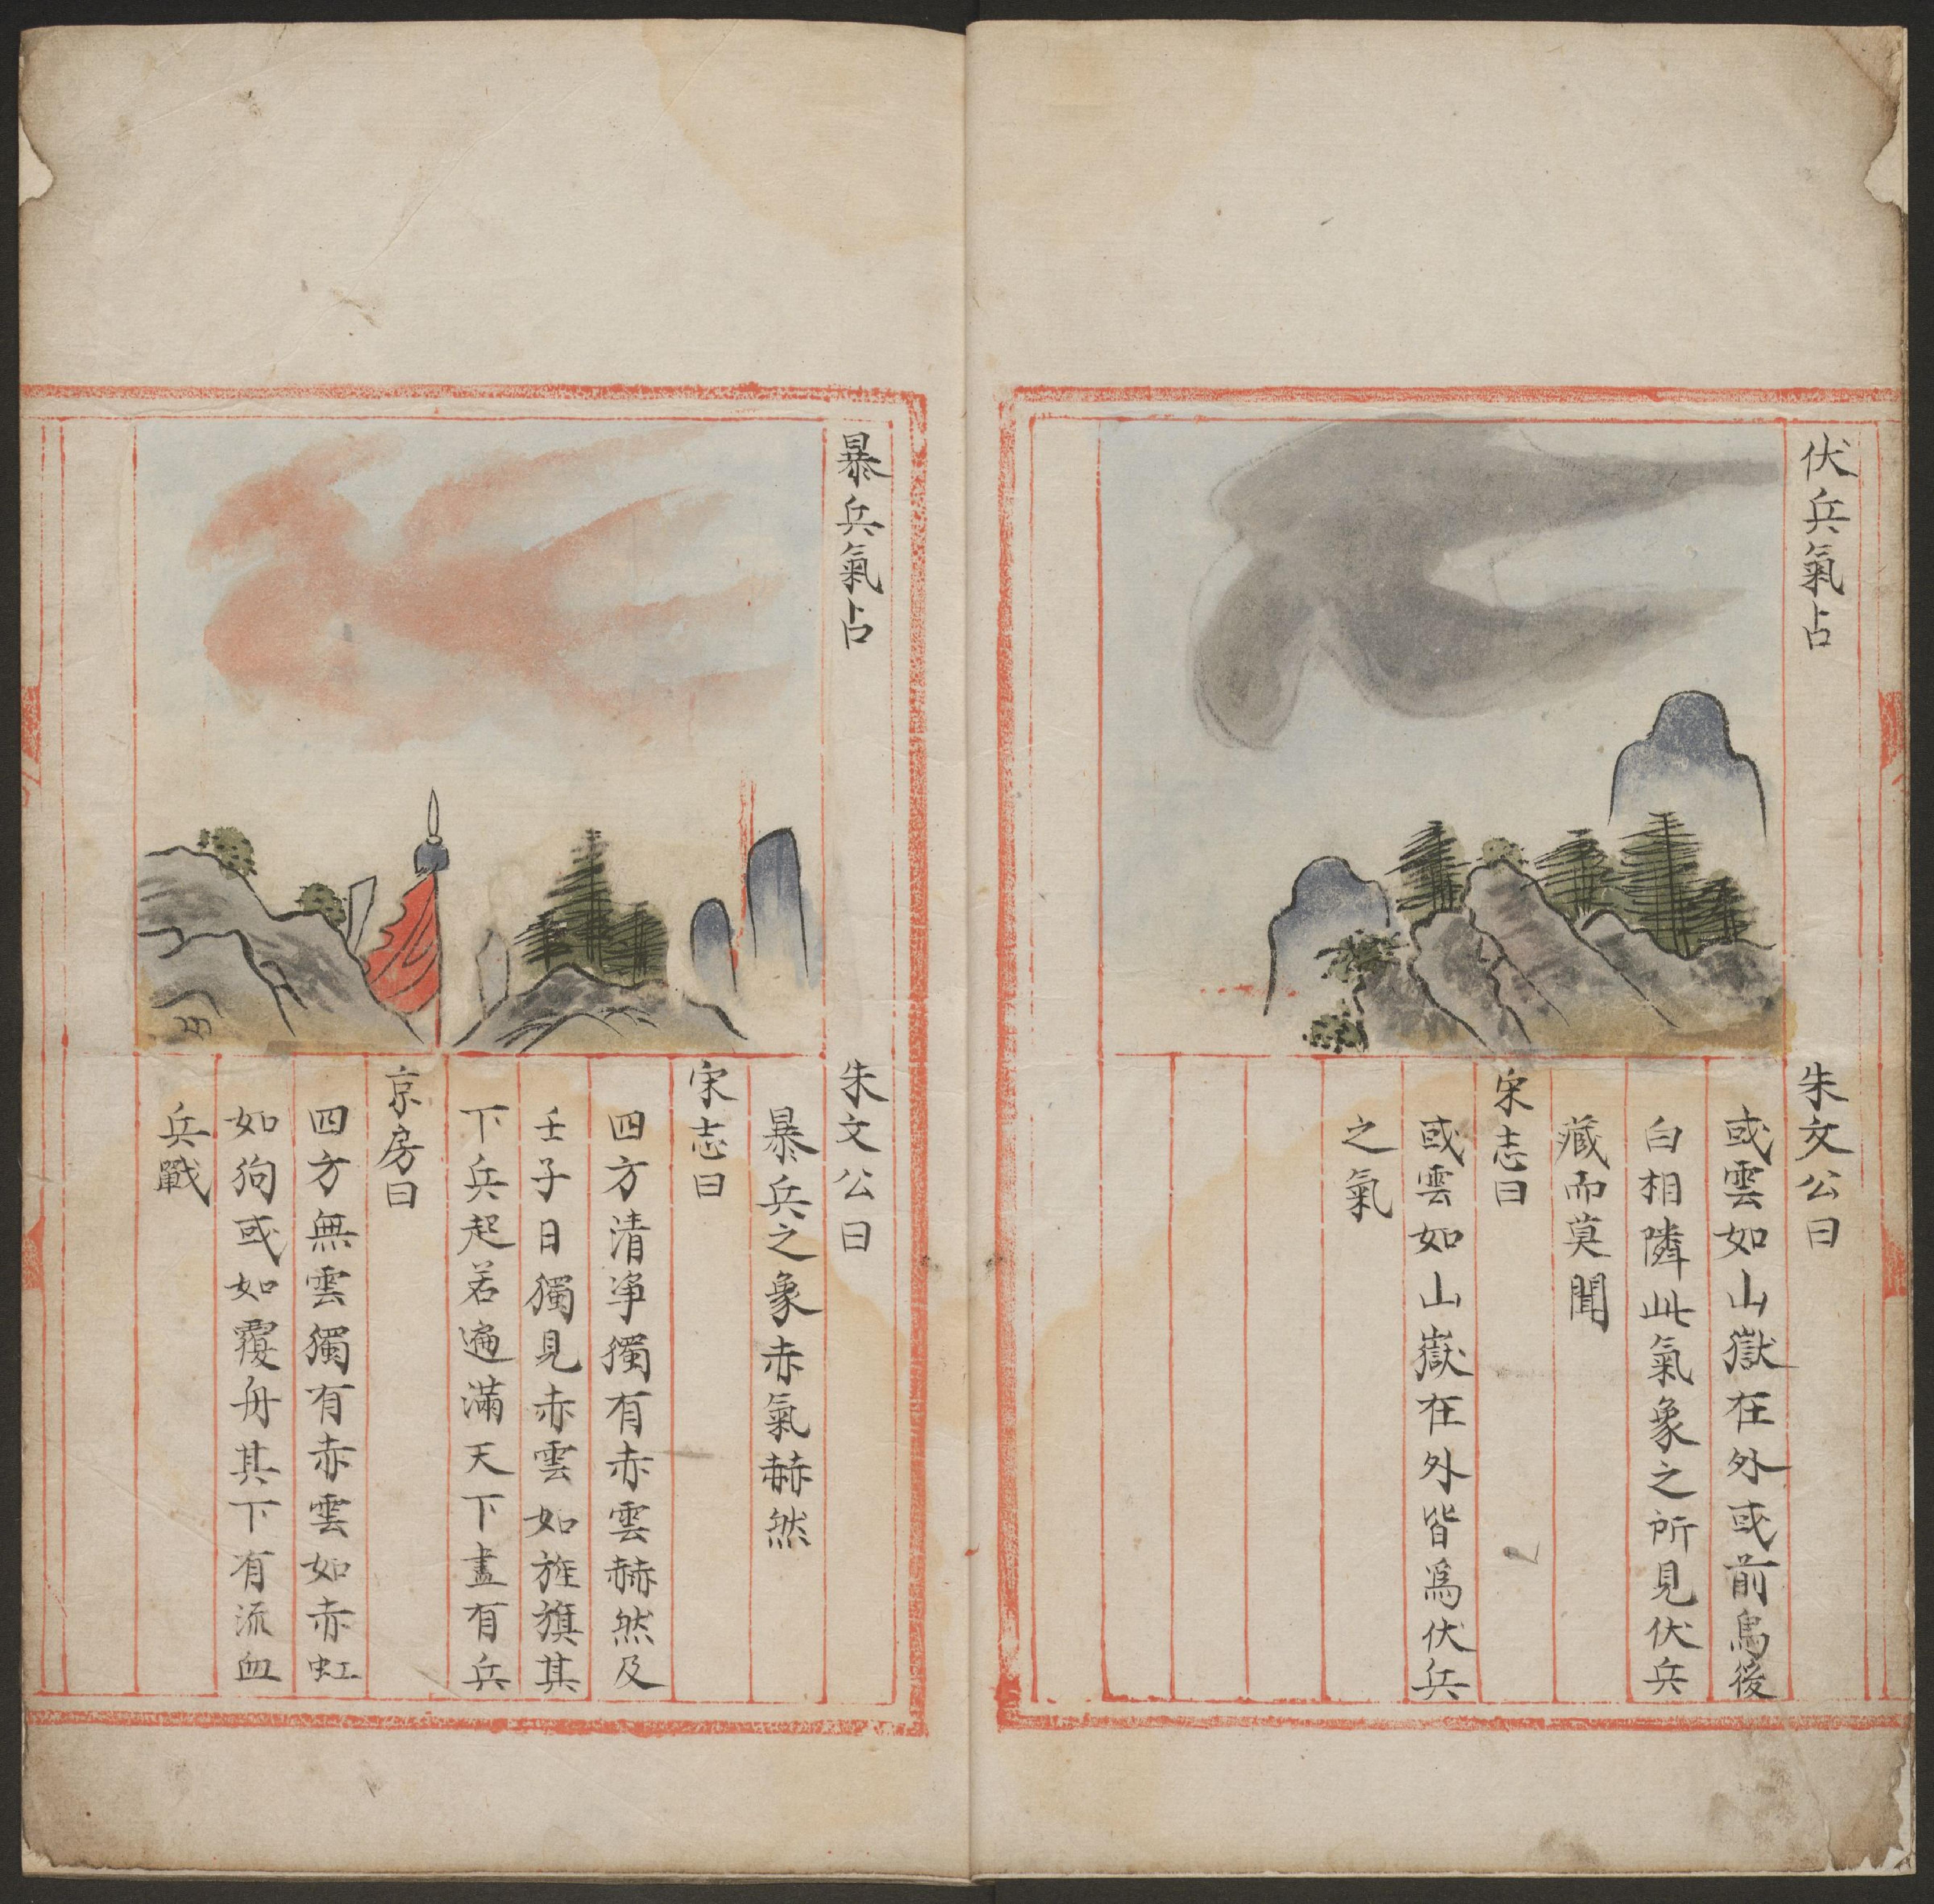 伏兵氣占
朱文公曰
或雲如山嶽在外或前烏後
白相隣此氣象之所見伏兵
藏而莫聞
宋志曰
或雲如山嶽在外皆爲伏兵
之氣
暴兵氣占
朱文公曰
暴兵之象赤氣赫然
宋志曰
四方清净獨有赤雲赫然及
壬子日獨見赤雲如旌旗其
下兵起若遍滿天下盡有兵
京房曰
四方無雲獨有赤雲如赤虹
如狗或如覆舟其下有流血
兵戰